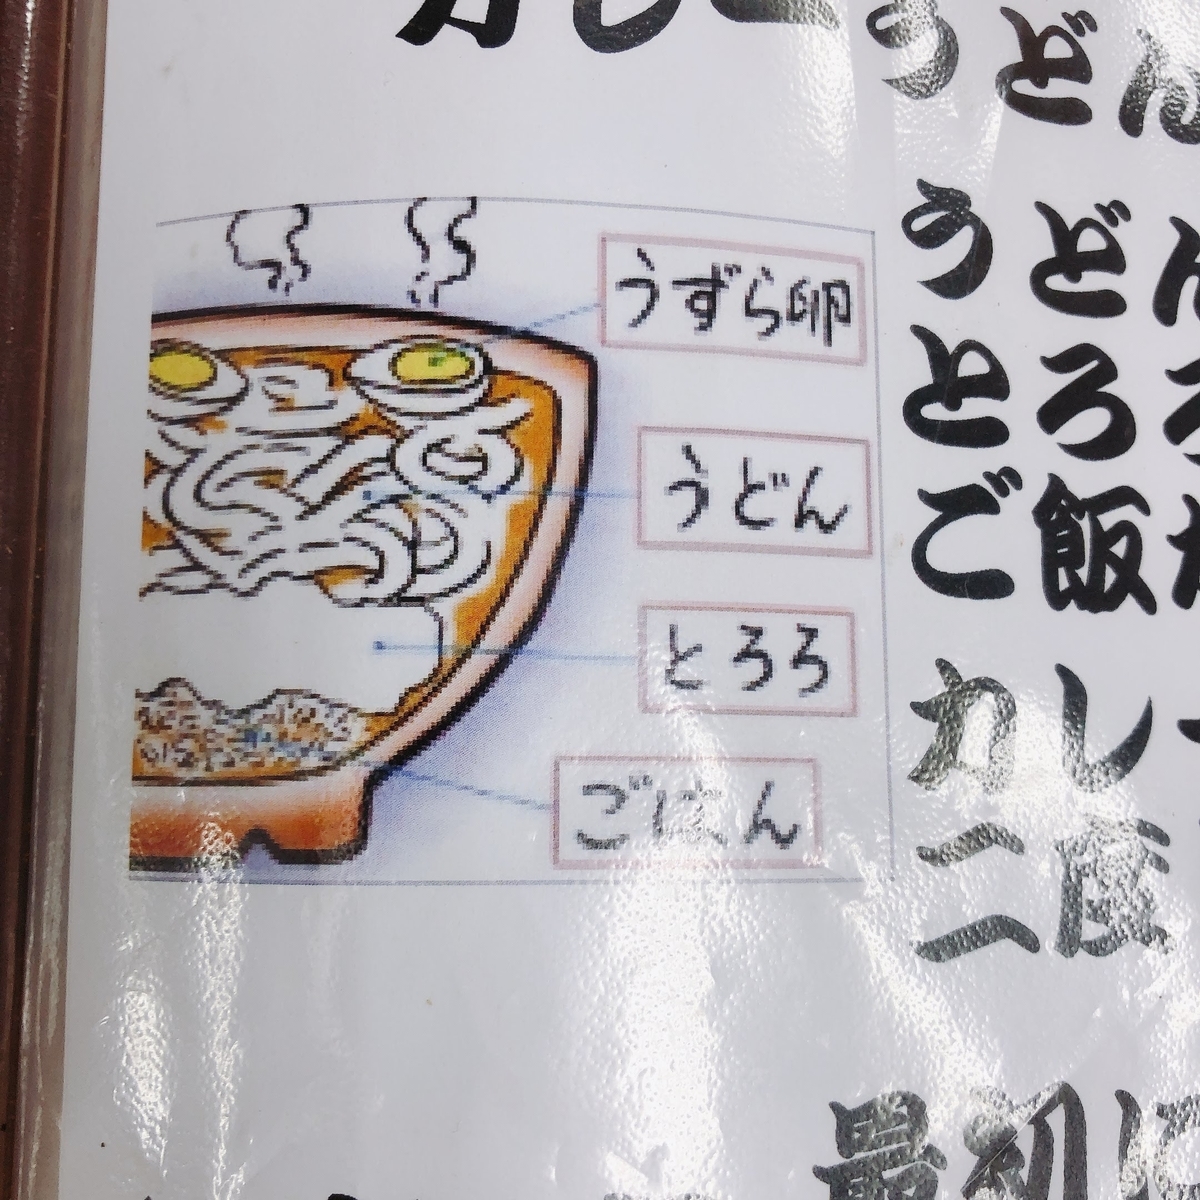 カレーうどん
うずら卵
うどん
とろろ
ごはん
うどん
とろ
ご飯
カレー
二度
最初は